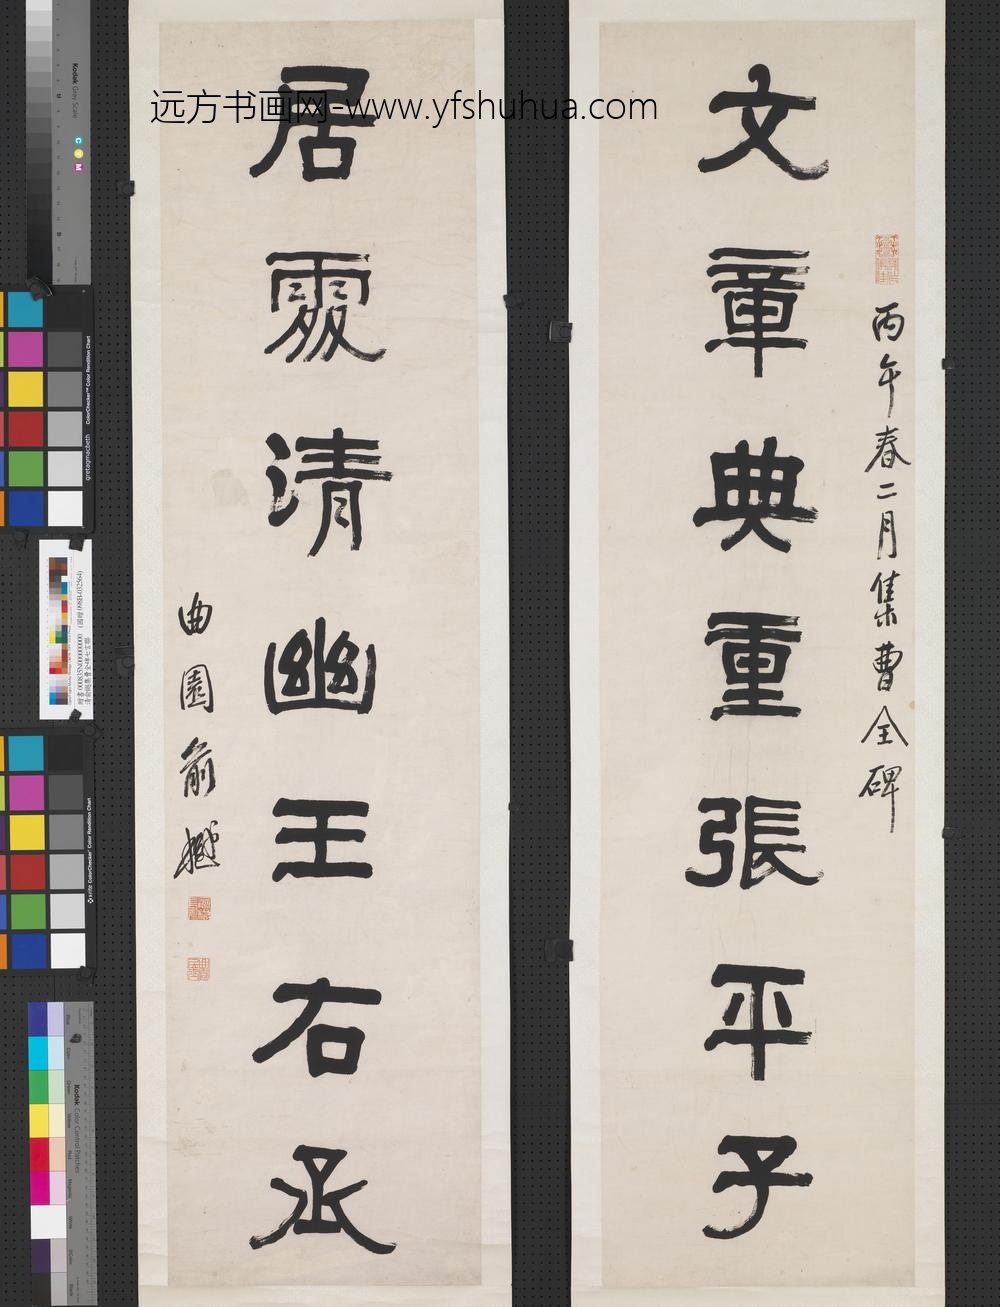 远方书画网-www.yfshuhua.com
丙午春二月集曹全碑
文章典重張平子
居處清幽王右丞
曲園俞樾
Kodak Gray Scale
C Y M
ColorChecker Color Rendition Chart
gretagmacbeth
ColorChecker Color Rendition Chart
x-rite
Kodak Color Control Patches